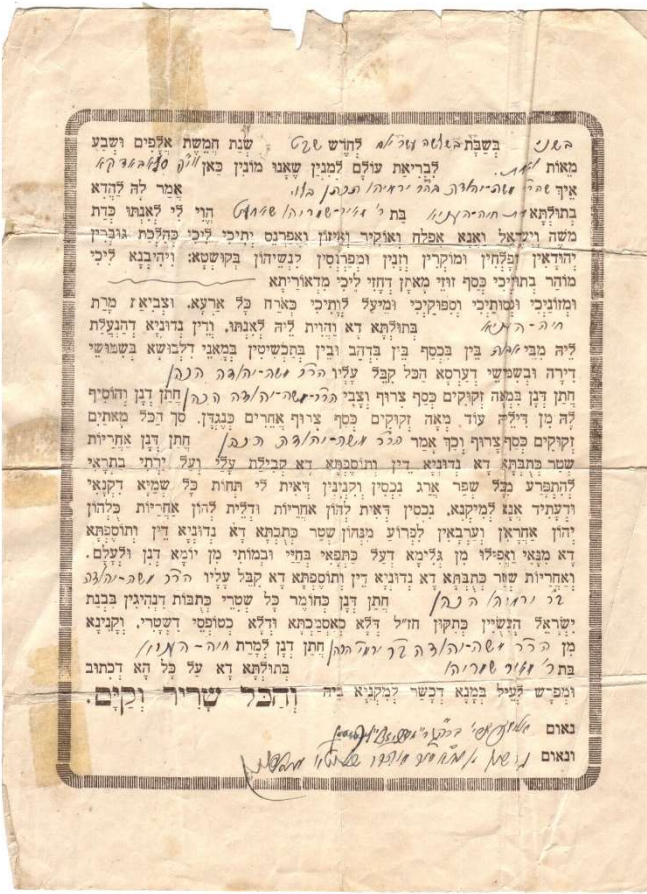 בשני בְּשַׁבָּת בשלשה עשר יום לְחֹדֶשׁ שבט שְׁנַת חֲמֵשֶׁת אֲלָפִים וּשְׁבַע
מֵאוֹת לִבְרִיאַת עוֹלָם לְמִנְיָן שֶׁאָנוּ מוֹנִין כָּאן
אֵיךְ משה יהודה בהר ירמיהו הכהן אֲמַר לַהּ לַהֲדָא
בְּתוּלְתָּא בַּת ר' מאיר שמריהו הֲוִי לִי לְאִנְתּוּ כְּדַת
מֹשֶׁה וְיִשְׂרָאֵל וַאֲנָא אֶפְלַח וְאוֹקִיר וְאֵיזוֹן וַאֲפַרְנֵס יָתִיכִי לִיכִי כְּהִלְכַת גּוּבְרִין
יְהוּדָאִין דְּפָלְחִין וּמוֹקְרִין וְזָנִין וּמְפַרְנְסִין לִנְשֵׁיהוֹן בְּקוּשְׁטָא: וִיהִיבְנָא לִיכִי
מוֹהַר בְּתוּלַיְכִי כְּסַף זוּזֵי מָאתָן דְּחָזֵי לִיכִי מִדְאוֹרַיְתָא
וּמְזוֹנַיְכִי וּכְסוּתַיְכִי וְסִפּוּקַיְכִי וּמֵיעַל לְוָתַיְכִי כְּאֹרַח כָּל אַרְעָא. וּצְבִיאַת מָרַת
חיה בְּתוּלְתָּא דָא וַהֲוַת לֵיהּ לְאִנְתּוּ. וְדֵין נְדוּנְיָא דְּהַנְעֲלַת
לֵיהּ מִבֵּי אבוה בֵּין בִּכְסֶף בֵּין בִּדְהַב וּבֵין בְּתַכְשִׁיטִין בְּמָאנֵי דִלְבוּשָׁא בְּשִׁמּוּשֵׁי
דִירָה וּבְשִׁמּוּשֵׁי דְעַרְסָא הַכֹּל קִבֵּל עָלָיו הר"ר משה יהודה הכהן
חֲתַן דְּנָן בְּמֵאָה זְקוּקִים כֶּסֶף צָרוּף וּצְבִי הר"ר משה יהודה הכהן חֲתַן דְּנָן וְהוֹסִיף
לַהּ מִן דִּילֵיהּ עוֹד מֵאָה זְקוּקִים כֶּסֶף צָרוּף אֲחֵרִים כְּנֶגְדָּן. סַךְ הַכֹּל מָאתַיִם
זְקוּקִים כֶּסֶף צָרוּף וְכָךְ אָמַר הר"ר משה יהודה הכהן חֲתַן דְּנָן אַחֲרָיוּת
שְׁטַר כְּתֻבְּתָא דָא נְדוּנְיָא דֵין וְתוֹסֶפְתָּא דָא קַבֵּילַת עָלַי וְעַל יָרְתֵי בַּתְרָאֵי
לְהִתְפָּרַע מִכָּל שְׁפַר אֲרַג נִכְסִין וְקִנְיָנִין דְּאִית לִי תְּחוֹת כָּל שְׁמַיָּא דִּקְנָאִי
וּדְעָתִיד אֲנָא לְמִיקְנָא. נִכְסִין דְּאִית לְהוֹן אַחֲרָיוּת וּדְלֵית לְהוֹן אַחֲרָיוּת כֻּלְּהוֹן
יְהוֹן אַחֲרָאִין וְעַרְבָאִין לִפְרוֹעַ מִנְּהוֹן שְׁטַר כְּתֻבְּתָא דָא נְדוּנְיָא דֵין וְתוֹסֶפְתָּא
דָא מִנַּאי וַאֲפִילוּ מִן גְּלִימָא דְעַל כַּתְפָאִי בְּחַיַּי וּבְמוֹתִי מִן יוֹמָא דְנָן וּלְעָלַם.
וְאַחֲרָיוּת שְׁטַר כְּתֻבְּתָא דָא נְדוּנְיָא דֵין וְתוֹסֶפְתָּא דָא קִבֵּל עָלָיו הר"ר משה יהודה
בר ירמיהו הכהן חֲתַן דְּנָן כְּחוֹמֶר כָּל שְׁטָרֵי כְּתֻבּוֹת דְּנָהֲגִין בִּבְנַת
יִשְׂרָאֵל הָעֲשׂוּיִין כְּתִקּוּן חז"ל דְּלָא כְאַסְמַכְתָּא וּדְלָא כְטוֹפְסֵי דִשְׁטָרֵי. וְקָנִינָא
מִן הר"ר משה יהודה בר ירמיהו הכהן חֲתַן דְּנָן לְמָרַת חיה
בַּת ר' מאיר שמריהו בְּתוּלְתָּא דָא עַל כָּל הָא דִּכְתוּב
וּמְפֹרָשׁ לְעֵיל בְּמָנָא דְּכָשֵׁר לְמִקְנְיָא בֵיהּ וְהַכֹּל שָׁרִיר וְקַיָּם.
נאום
ונאום